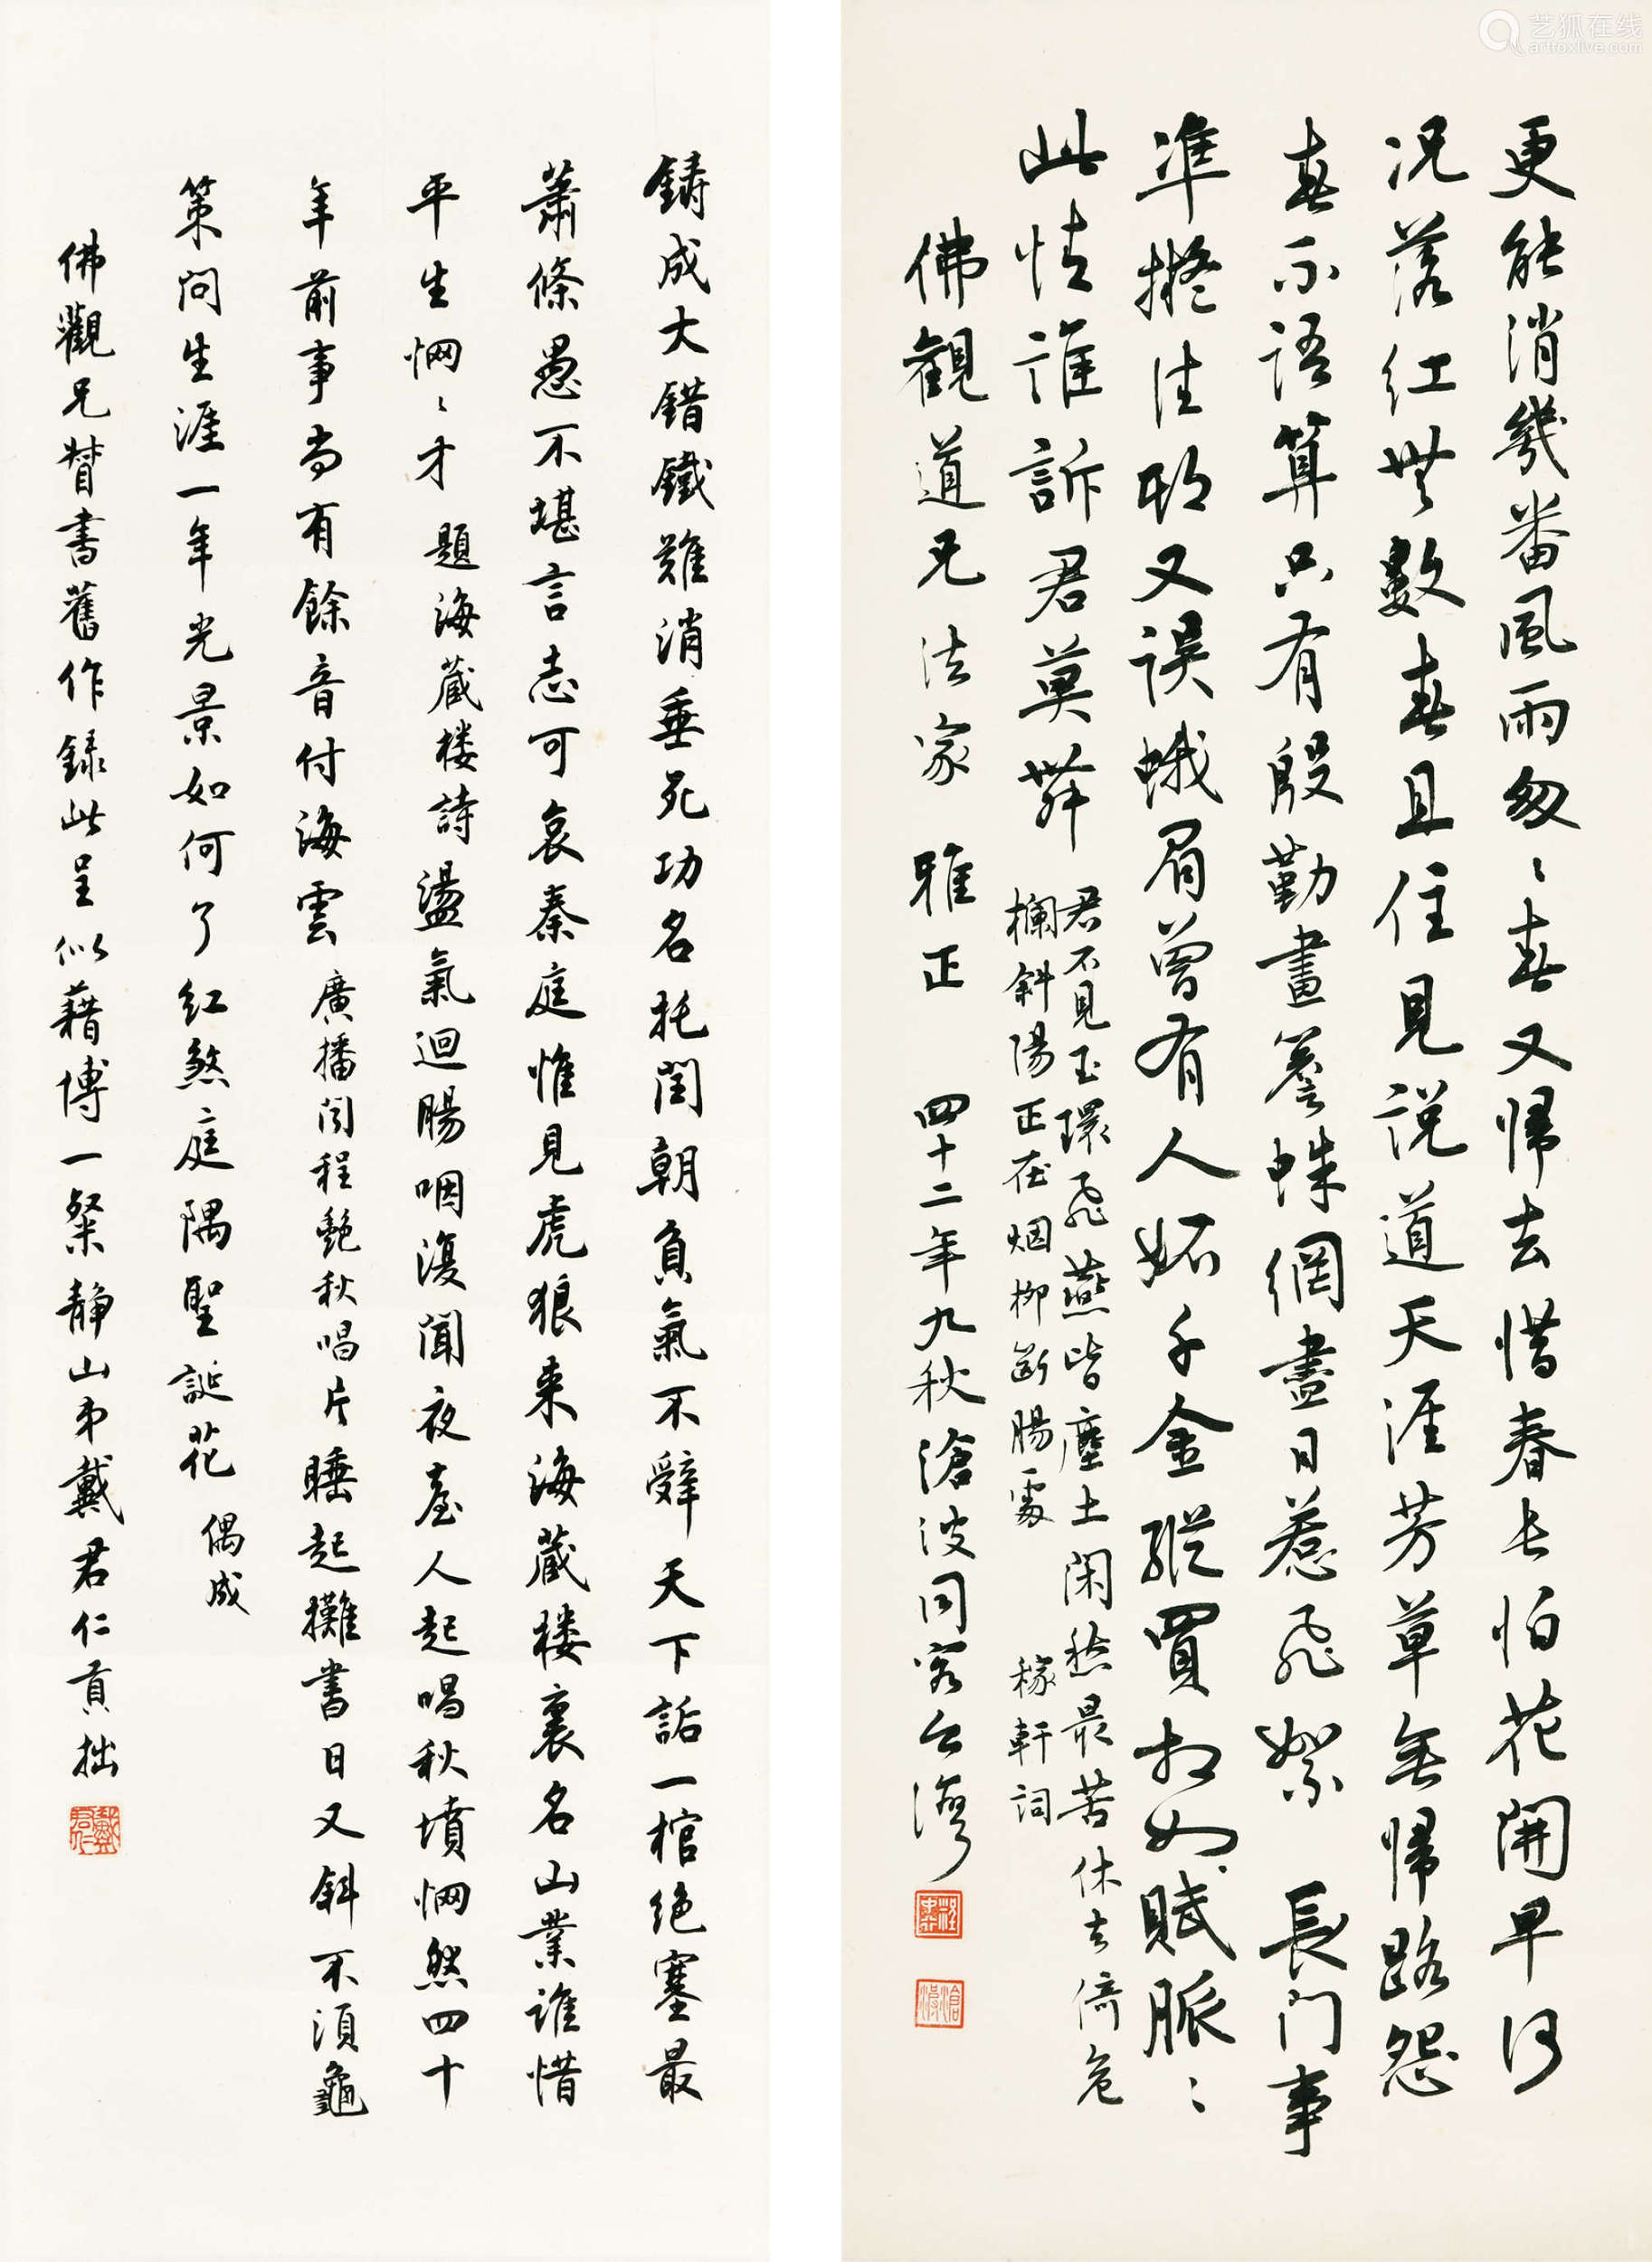 艺狐在线
artfoxlive.com
更能消幾番風雨匆〻春又歸去惜春長怕花開早何
況落紅無數春且住見說道天涯芳草無歸路怨
春不語算只有殷勤畫簷蛛網盡日惹飛絮 長門事
準擬佳期又誤蛾眉曾有人妬千金縱買相如賦脈〻
此情誰訴君莫舞
君不見玉環飛燕皆塵土閑愁最苦休去倚危
欄斜陽正在烟柳斷腸處 稼軒詞
佛觀道兄法家雅正 四十二年九秋滄波同客台灣
鑄成大錯鐵難消垂死功名托閏朝負氣不辭天下詬一棺絕塞最
蕭條愚不堪言志可哀秦庭惟見虎狼来海藏楼裏名山業誰惜
平生惘〻才 題海藏楼詩 盪氣迴腸咽復聞夜臺人起唱秋墳惘然四十
年前事尚有餘音付海雲 廣播聞程艶秋唱片 睡起攤書日又斜不須龜
策問生涯一年光景如何了紅煞庭隅聖誕花 偶成
佛觀兄督書舊作録此呈似藉博一粲静山弟戴君仁貢拙
戴君仁